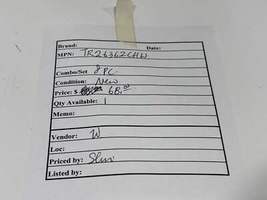 Brand: Date:
MPN: TR26362CHW
Combo/Set 8 PC.
Condition: New
Price: $ 68.00
Qty Available: 1
Memo:
Vendor: W
Loc:
Priced by:
Listed by: